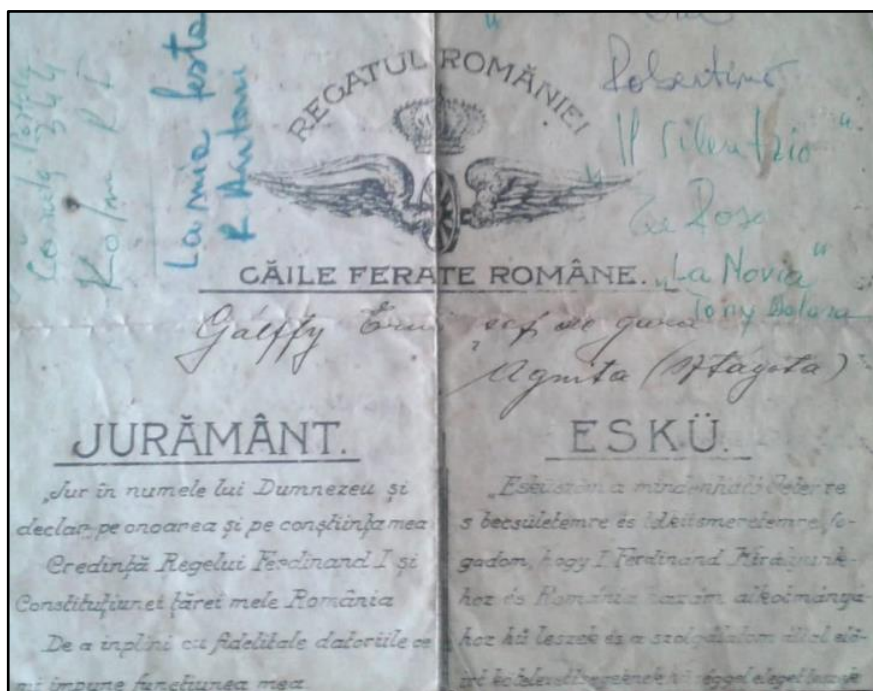 Robertino
"Il Silentzio"
Rose
"La Novia"
Tony Dalara
La mia festa
R. Antoni
344
REGATUL ROMÂNIEI
CĂILE FERATE ROMÂNE.
Gálffy șef de gura
Agnita (Sztágota)
JURĂMÂNT.
„Jur în numele lui Dumnezeu și
declar pe onoarea și pe conștiința mea
Credință Regelui Ferdinand I și
Constituțiunei țărei mele România
De a inplini cu fidelitate datoriile ce
mi impune funcțiunea mea
ESKÜ.
„Esküszöm a mindenható
s becsületemre és lelkiismeretemre, fo-
gadom, hogy I Ferdinand Királyunk-
hoz és Románia hazám alkotmányá-
hoz hű leszek és a szolgálatom által elő-